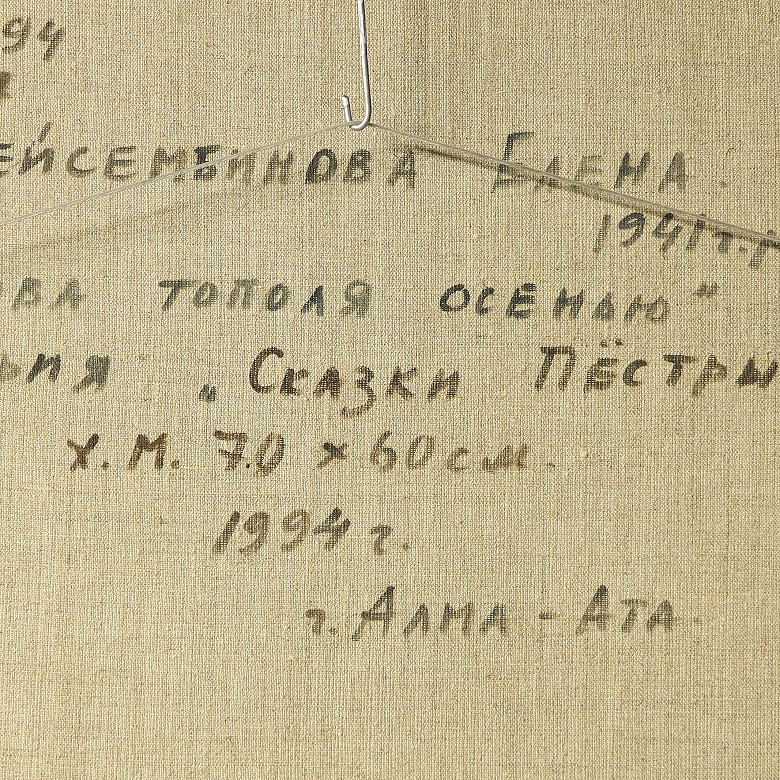 94
ЕЙСЕМБИНОВА ЕЛЕНА.
1941г.р
ОВА ТОПОЛЯ ОСЕНЬЮ"
ЬИЯ „СКАЗКИ ПЁСТРЫ
Х.М. 70 x 60 см.
1994 г.
г. АЛМА-АТА.